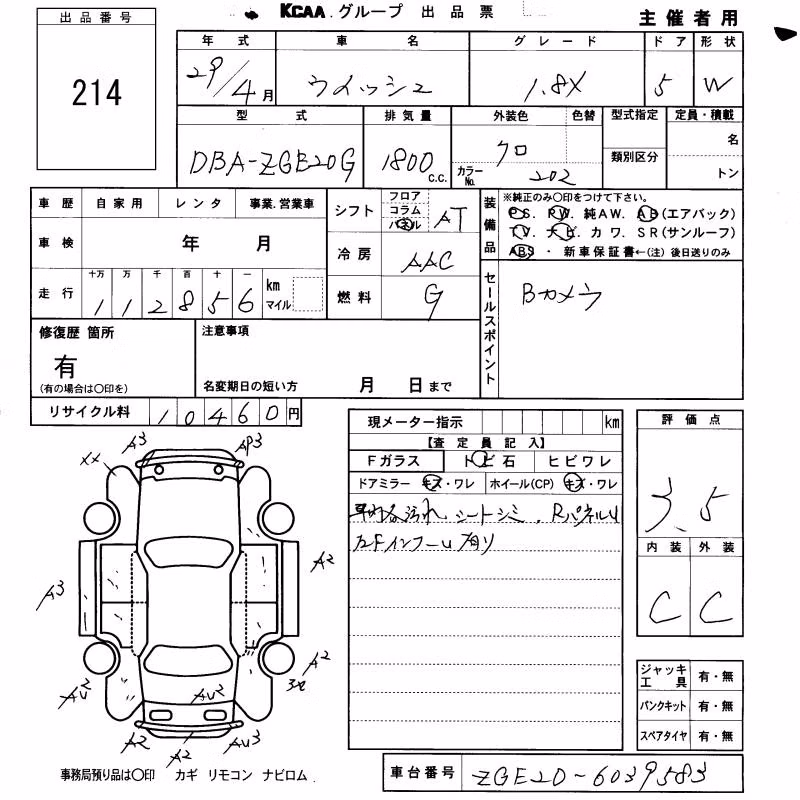 KCAA グループ 出品票
主催者用
出品番号
214
年式 車名 グレード ドア 形状
29/4月 ウィッシュ 1.8X 5 W
型式 排気量 外装色 色替 型式指定 定員・積載
DBA-ZGE20G 1800 C.C. クロ カラーNo. 202 類別区分 名 トン
車歴 自家用 レンタ 事業.営業車
車検 年 月
走行 十万 万 千 百 十 一 km マイル
112856
シフト フロア コラム パネル AT
冷房 AAC
燃料 G
装備品
※純正のみ○印をつけて下さい。
PS. PW. 純AW. AB(エアバック)
TV. ナビ. カワ. SR(サンルーフ)
ABS ・ 新車保証書←(注) 後日送りのみ
セールスポイント
Bカメラ
修復歴 箇所
有
(有の場合は○印を)
注意事項
名変期日の短い方 月 日まで
リサイクル料 10460円
現メーター指示 km
【査定員記入】
Fガラス トビ石 ヒビワレ
ドアミラー キズ・ワレ ホイール(CP) キズ・ワレ
車内各汚れ、シートシミ、RパネルU
左FインナーU有り
評価点
3.5
内装 外装
C C
ジャッキ工具 有・無
パンクキット 有・無
スペアタイヤ 有・無
A3 AP3
XX
A2
A3
A2
AU2 AU2
A2 A2 AU3
事務局預り品は○印 カギ リモコン ナビロム.
車台番号 ZGE20-6039583